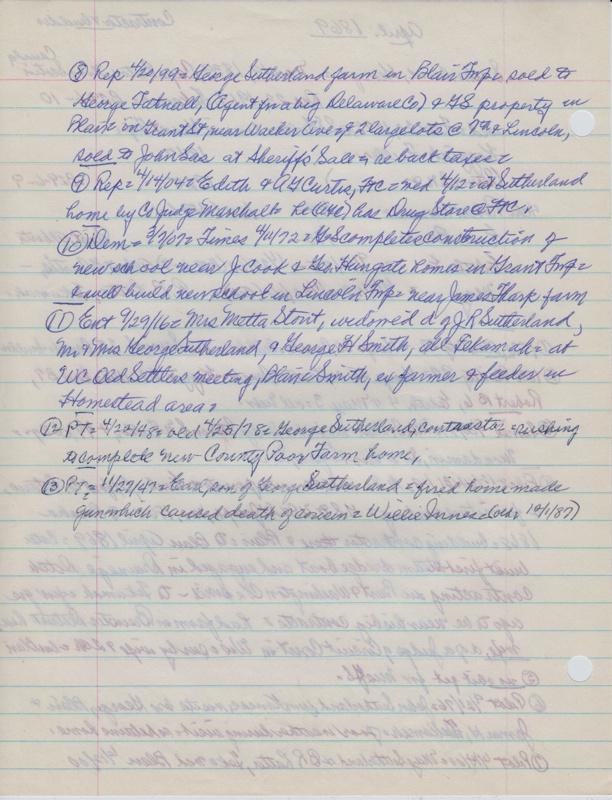 ⑧ Rep 4/20/99 = George Sutherland farm in Blair Twp = sold to
George Tatnall, (agent for a big Delaware Co) & GS property in
Blair in Grant St, near Walker Ave = & 2 large lots @ 7th & Lincoln,
sold to John Sas at Sheriff's Sale = re back taxes =
⑨ Rep = 4/14/04 = Edith & A Y Curtis, FtC = wed 4/12 = at Sutherland
home by Co Judge Marshall = he has Drug Store @ FtC.
⑩ Dem = 3/7/07 = Times 4/4/72 = GS completes construction of
new school near J Cook & Geo. Hungate homes in Grant Twp =
& will build new school in Lincoln Twp = near James Thark farm
⑪ Ent 9/29/16 = Mrs Metta Stout, widowed d of J R Sutherland,
Mr & Mrs George Sutherland, & George H Smith, all Tekamah = at
WC Old Settlers meeting, Blaine Smith, ex farmer & feeder in
Homestead area =
⑫ PT = 4/22/78 = old 4/25/78 = George Sutherland, contractor = rushing
to complete new County Poor Farm home,
⑬ PT = 11/27/47 = Earl, son of George Sutherland = fired home made
gun which caused death of cousin = Willie Innes = (old, 10/1/87)